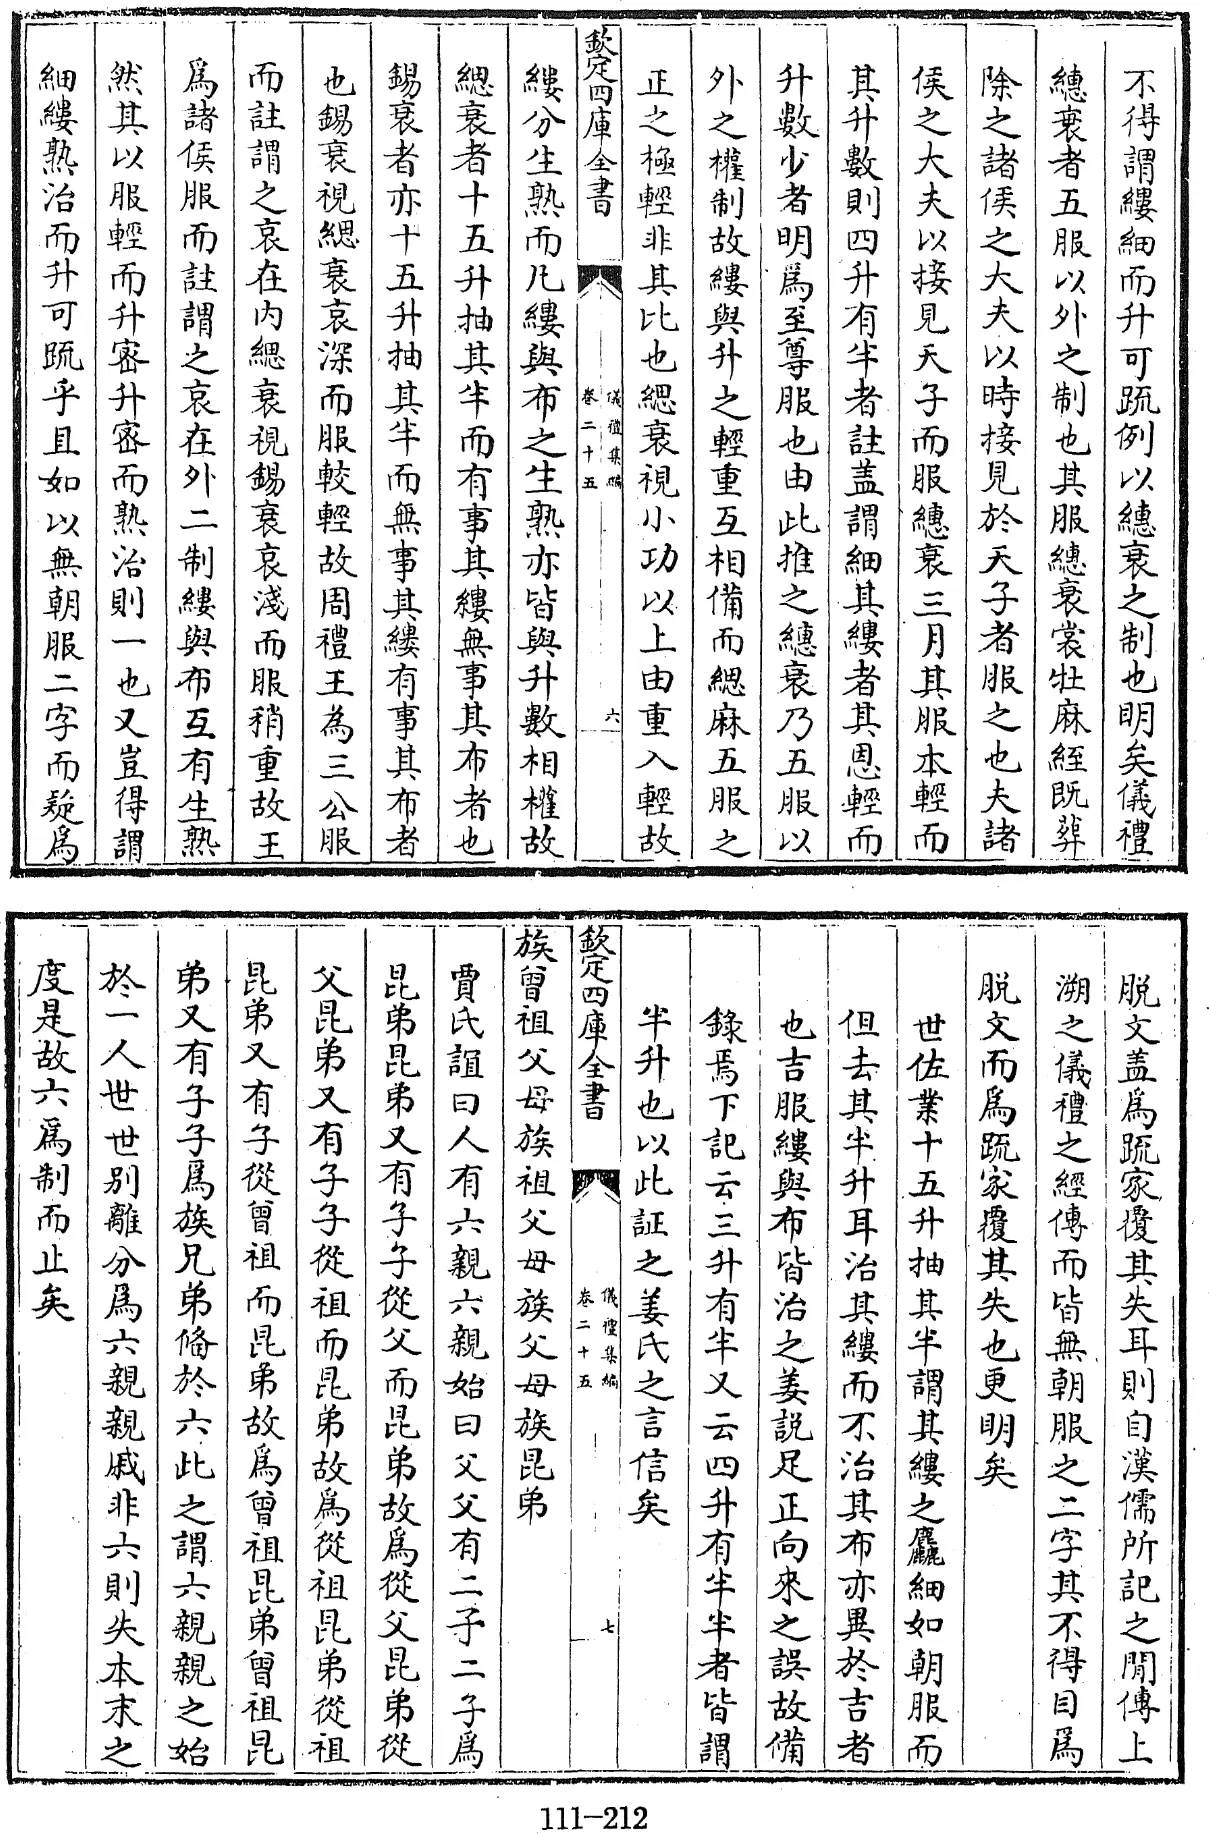 不得謂縷細而升可䟽例以繐衰之制也明矣儀禮
繐衰者五服以外之制也其服繐衰裳牡麻絰既葬
除之諸侯之大夫以時接見於天子者服之也夫諸
侯之大夫以接見天子而服繐衰三月其服本輕而
其升數則四升有半者註蓋謂細其縷者其恩輕而
升數少者明爲至尊服也由此推之繐衰乃五服以
外之權制故縷與升之輕重互相備而緦麻五服之
正之極輕非其比也緦衰視小功以上由重入輕故
欽定四庫全書
儀禮集編
卷二十五
六
縷分生熟而凡縷與布之生熟亦皆與升數相權故
緦衰者十五升抽其半而有事其縷無事其布者也
錫衰者亦十五升抽其半而無事其縷有事其布者
也錫衰視緦衰哀深而服較輕故周禮王為三公服
而註謂之哀在内緦衰視錫衰哀淺而服稍重故王
爲諸侯服而註謂之哀在外二制縷與布互有生熟
然其以服輕而升密升密而熟治則一也又豈得謂
細縷熟治而升可䟽乎且如以無朝服二字而疑爲
脱文蓋爲䟽家覆其失耳則自漢儒所記之閒傳上
溯之儀禮之經傳而皆無朝服之二字其不得目爲
脱文而爲䟽家覆其失也更明矣
世佐業十五升抽其半謂其縷之麤細如朝服而
但去其半升耳治其縷而不治其布亦異於吉者
也吉服縷與布皆治之姜説足正向來之誤故備
錄焉下記云三升有半又云四升有半半者皆謂
半升也以此証之姜氏之言信矣
欽定四庫全書
儀禮集編
卷二十五
七
族曾祖父母族祖父母族父母族昆弟
賈氏誼曰人有六親六親始曰父父有二子二子爲
昆弟昆弟又有子子從父而昆弟故爲從父昆弟從
父昆弟又有子子從祖而昆弟故爲從祖昆弟從祖
昆弟又有子從曾祖而昆弟故爲曾祖昆弟曾祖昆
弟又有子子爲族兄弟俻於六此之謂六親親之始
於一人世世别離分爲六親親戚非六則失本末之
度是故六爲制而止矣
111-212